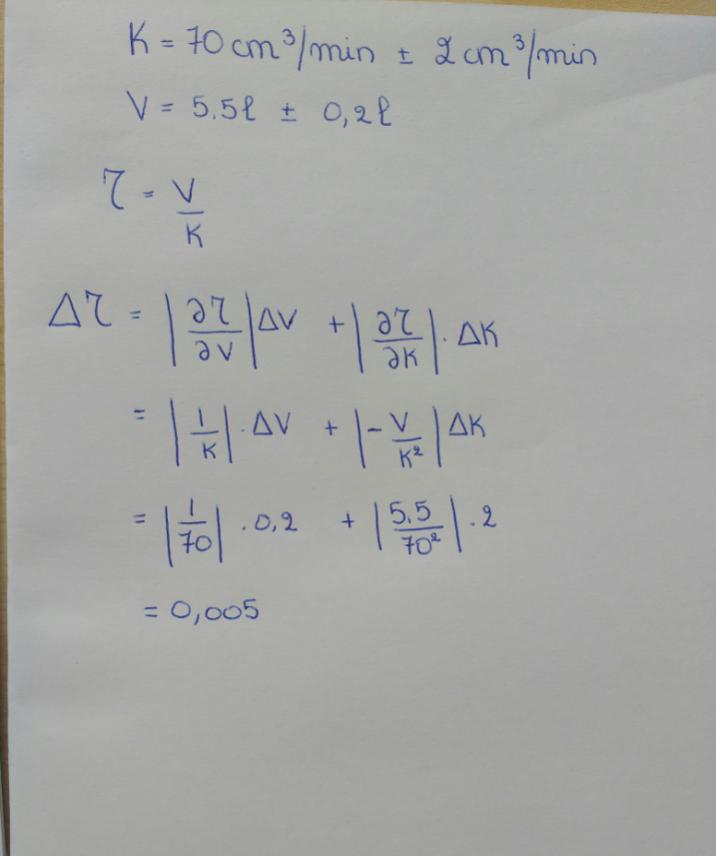 K = 70 cm³/min ± 2 cm³/min
V = 5.5ℓ ± 0,2ℓ
τ = V/K
Δτ = |∂τ/∂V| ΔV + |∂τ/∂K| · ΔK
= |1/K| · ΔV + |-V/K²| ΔK
= |1/70| · 0,2 + |5.5/70²| · 2
= 0,005